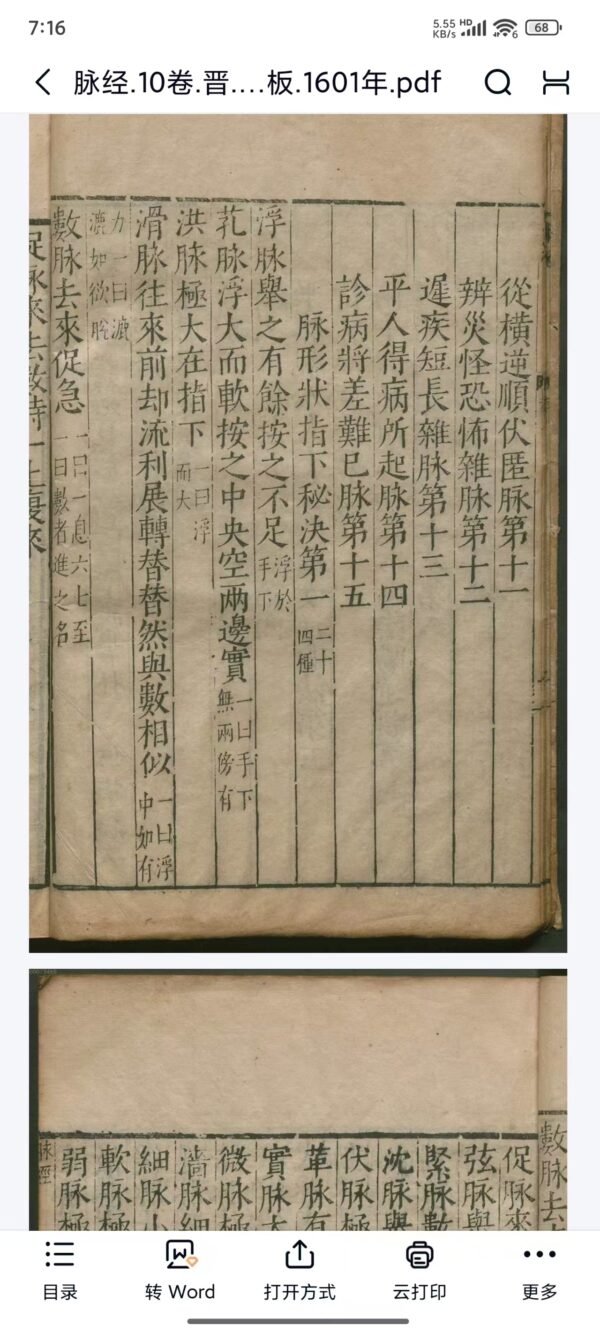 7:16
5.55 KB/s
HD
6
68
脉经.10卷.晋....板.1601年.pdf
從橫逆順伏匿脉第十一
辨災怪恐怖雜脉第十二
遲疾短長雜脉第十三
平人得病所起脉第十四
診病將差難已脉第十五
脉形狀指下秘決第一 二十四種
浮脉舉之有餘按之不足 浮於手下
芤脉浮大而軟按之中央空兩邊實 一曰手下無兩傍有
洪脉極大在指下 一曰浮而大
滑脉往來前却流利展轉替替然與數相似 一曰浮中如有
力一曰漉漉如欲脫
數脉去來促急 一曰一息六七至一曰數者進之名
促脉來去數時一止復來
數脉去
促脉來
弦脉與
緊脉數
沈脉與
伏脉極
革脉有
實脉大
微脉極
濇脉細
細脉小
軟脉極
弱脉極
脉經
目录
转 Word
打开方式
云打印
更多